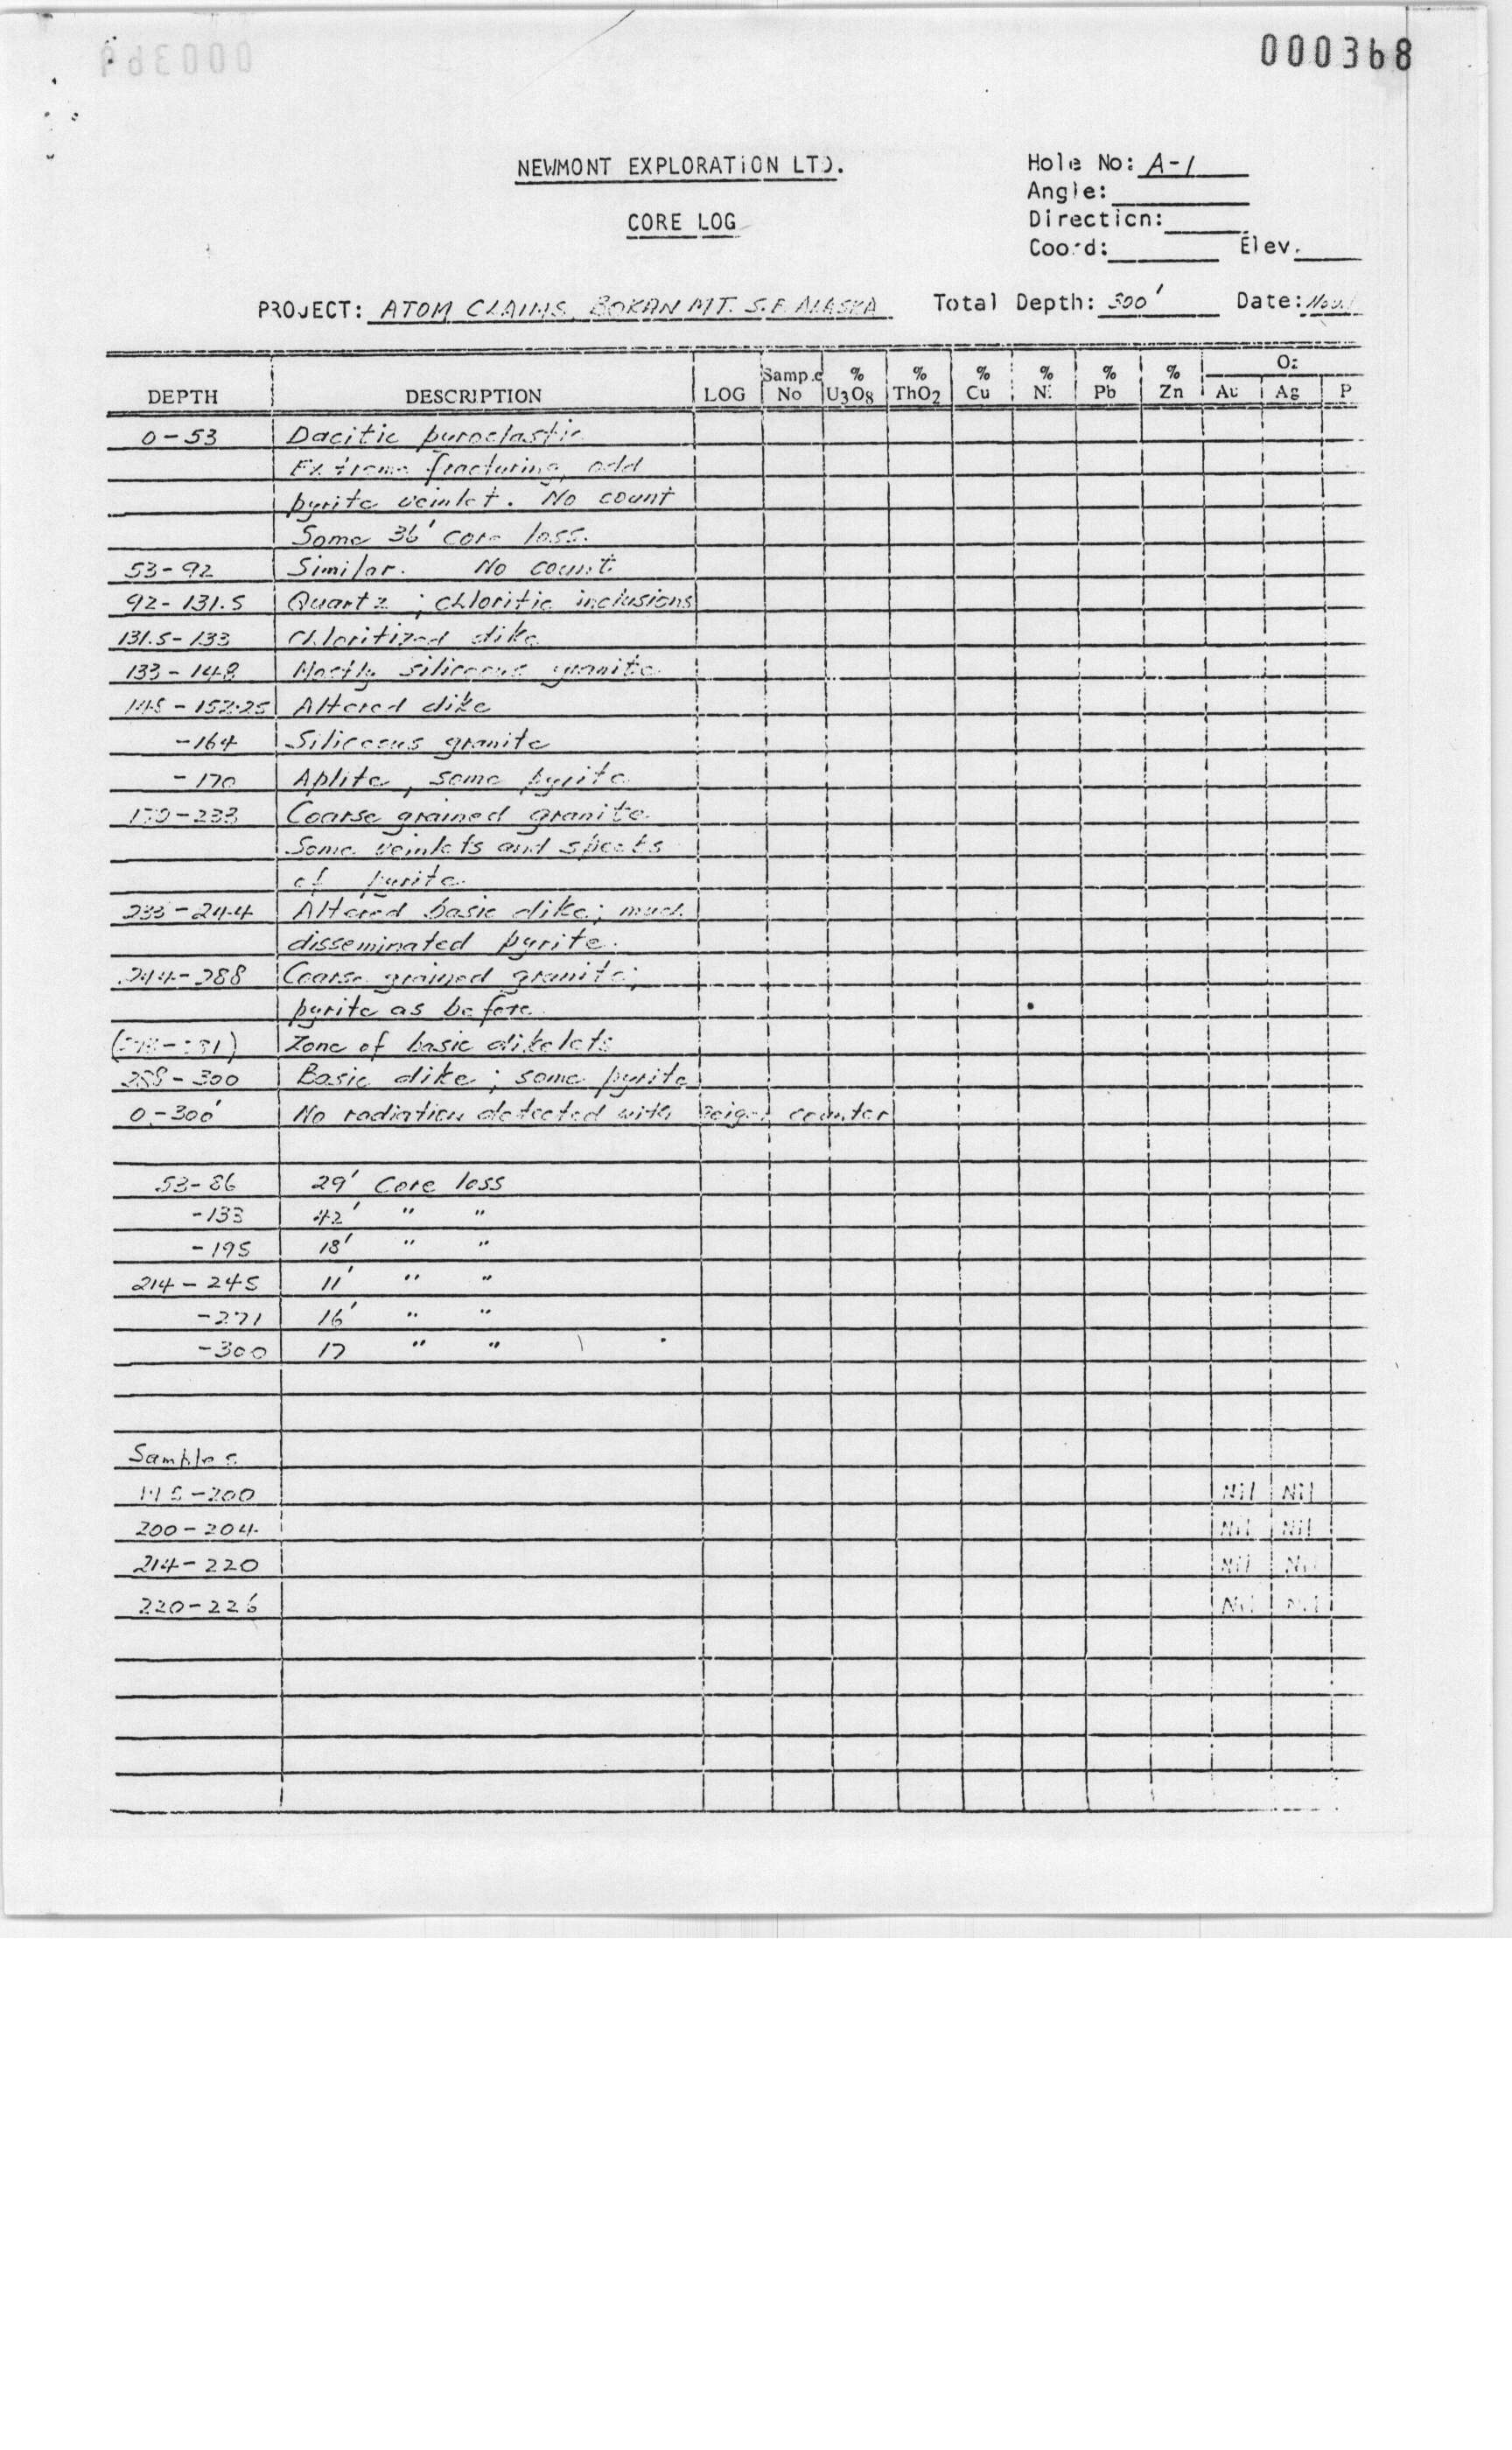 000368
NEWMONT EXPLORATION LTD.
CORE LOG
Hole No: A-1
Angle:
Direction:
Coord: Elev.
PROJECT: ATOM CLAIMS, BOKAN MT. S.E. ALASKA Total Depth: 300' Date: Nov.
DEPTH DESCRIPTION LOG Sample No % U3O8 % ThO2 % Cu % Ni % Pb % Zn Oz Au Ag P
0-53 Dacitic pyroclastic
Extreme fracturing, odd
pyrite veinlet. No count
Some 36' core loss.
53-92 Similar. No count
92-131.5 Quartz; chloritic inclusions
131.5-133 Chloritized dike
133-148 Mostly siliceous granite
148-152.25 Altered dike
-164 Siliceous granite
-170 Aplite, some pyrite
170-233 Coarse grained granite.
Some veinlets and specks
of pyrite.
233-244 Altered basic dike; much
disseminated pyrite.
244-288 Coarse grained granite;
pyrite as before.
Zone of basic dikelets
288-300 Basic dike; some pyrite
0-300' No radiation detected with Geiger counter
53-86 29' Core loss
-133 42' " "
-195 18' " "
214-245 11' " "
-271 16' " "
-300 17 " "
Samples
-200 Nil Nil
200-204 Nil Nil
214-220 Nil Nil
220-226 Nil Nil